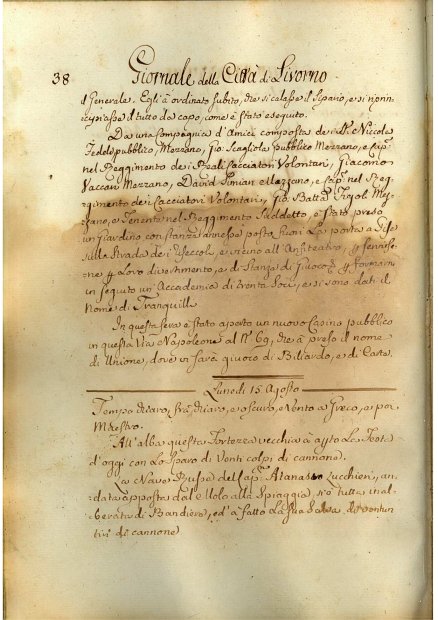 38
Giornale della Città di Livorno
il Generale. Egli à ordinato subito, che si calasse il Sipario, e si rico
minciasse il tutto da capo, come è stato eseguito.
Da una Compagnia d'Amici composta dei SS. Niccola
Tedels pubblico Mezzano, Gio. Scagliola pubblico Mezzano, e Cap.
nel Reggimento dei Reali Cacciatori Volontari, Giacomo
Vaccari Mezzano, David Simian Mezzano, e Cap. nel Reg
gimento dei Cacciatori Volontari, Gio. Batta Mez
zano, e Tenente nel Reggimento Suddetto, è stato preso
un Giardino con stanza annessa posto fuori La porta a Pisa
sulla Strada dei Riseccoli, e vicino all'Anfiteatro, p servirse
ne p loro divertimento, e di Stanza di Giuoco, p formarvi
in seguito un'Accademia di trenta Soci, e si sono dati il
Nome di Tranquilli
In questa sera è stato aperto un nuovo Casino pubblico
in questa Via Napoleone al N.º 69, che à preso il nome
di Unione, dove vi sarà giuoco di Biliardo, e di Carte.
Lunedi 15 Agosto
Tempo chiaro, frà chiaro, e oscuro, e Vento a Greco, e poi
Maestro.
All'alba questa Fortezza vecchia à ayto La festa
d'oggi con Lo Sparo di Venti colpi di cannone.
La Nave Russa del Cap. Atanasio Lucchieri, an
data apposta dal Molo alla Spiaggia s'è tutta inal
berata di Bandiere, ed à fatto La sua Salva di ventun
tiri di cannone.